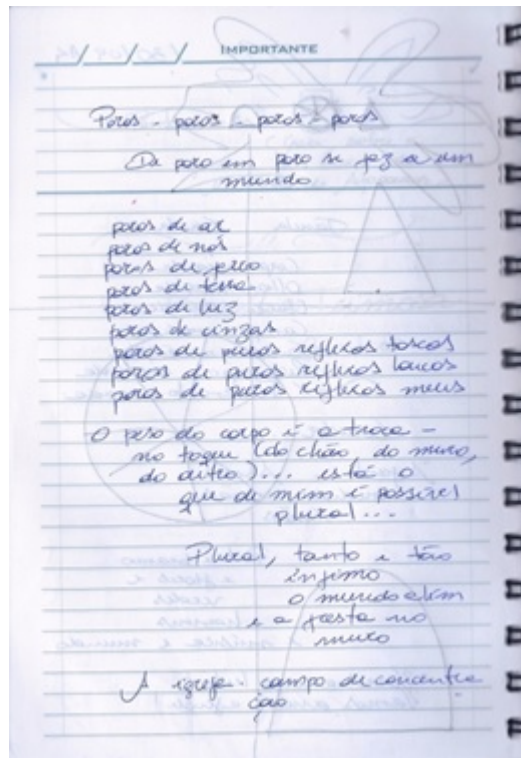 IMPORTANTE
Poros - poros - poros - poros
De poro em poro se fez a um
mundo
poros de ar
poros de nós
poros de
poros de terra
poros de luz
poros de cinzas
poros de puros reflexos toscos
poros de puros reflexos loucos
poros de puros reflexos meus
O peso do corpo é a troca -
no toque (do chão, do muro,
do outro)... está o
que de mim é possível
plural...
Plural, tanto e tão
ínfimo
o mundo
e a fresta no
muro
A igreja campo de concentra
ção